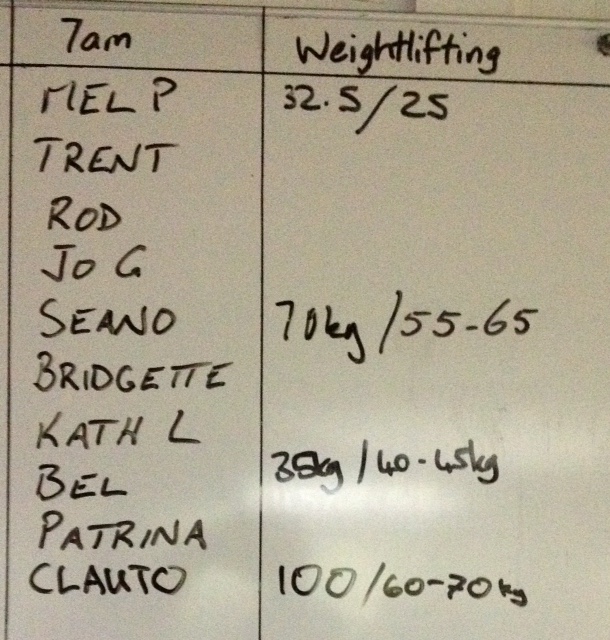 7am Weightlifting
MEL P 32.5/25
TRENT
ROD
JO G
SEANO 70kg/55-65
BRIDGETTE
KATH L
BEL 38kg/40-45kg
PATRINA
CLAUTO 100/60-70kg